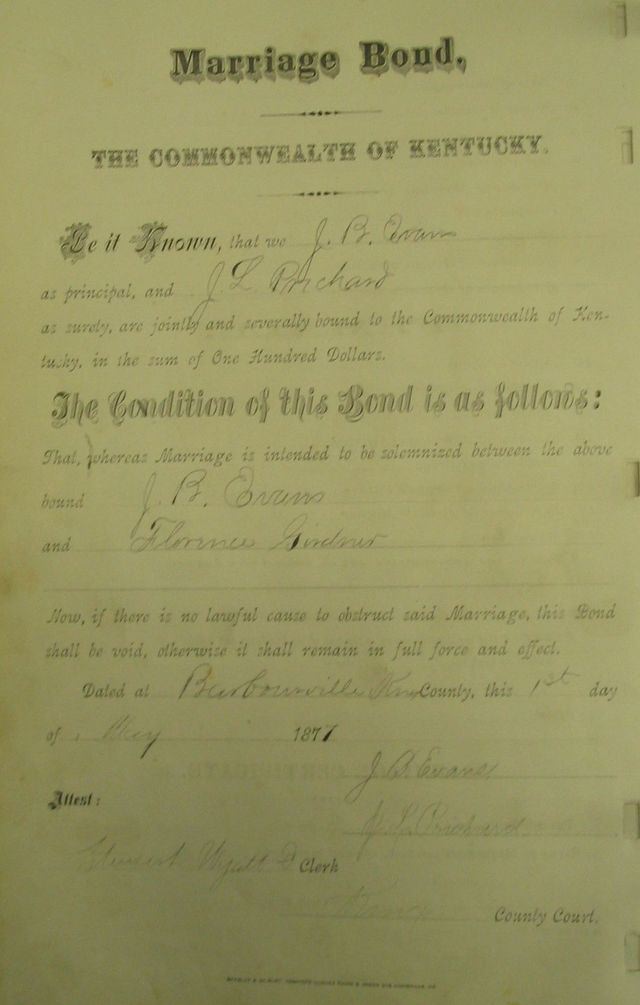 Marriage Bond,
THE COMMONWEALTH OF KENTUCKY.
Be it Known, that we J. B. Evans
as principal, and J. L. Prichard
as surely, are jointly and severally bound to the Commonwealth of Ken-
tucky, in the sum of One Hundred Dollars.
The Condition of this Bond is as follows:
That, whereas Marriage is intended to be solemnized between the above
bound J. B. Evans
and Florence Girdner
Now, if there is no lawful cause to obstruct said Marriage, this Bond
shall be void, otherwise it shall remain in full force and effect.
Dated at Barbourville Knox County, this 1st day
of May 1877
J. B. Evans
Attest:
J. L. Prichard
Wyatt D Clerk
Knox County Court.